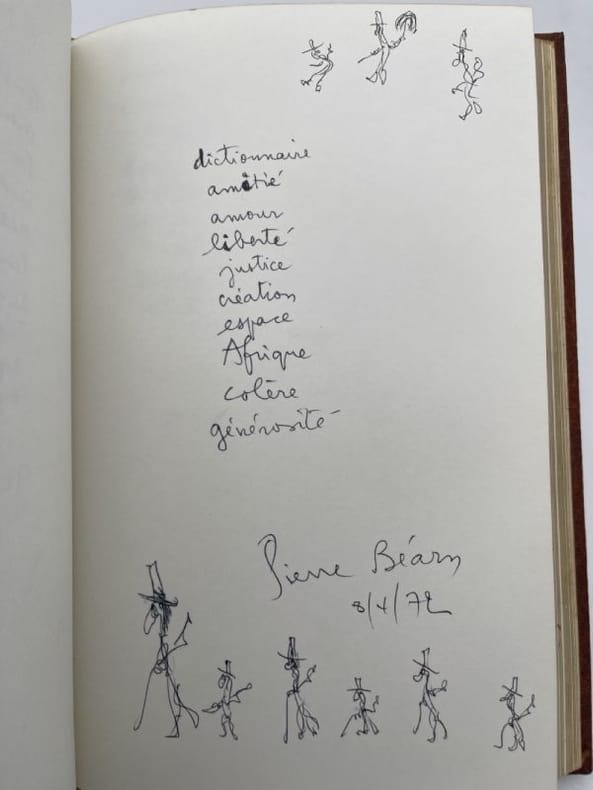 dictionnaire
amitié
amour
liberté
justice
création
espace
Afrique
colère
générosité
Pierre Béarn
8/4/72